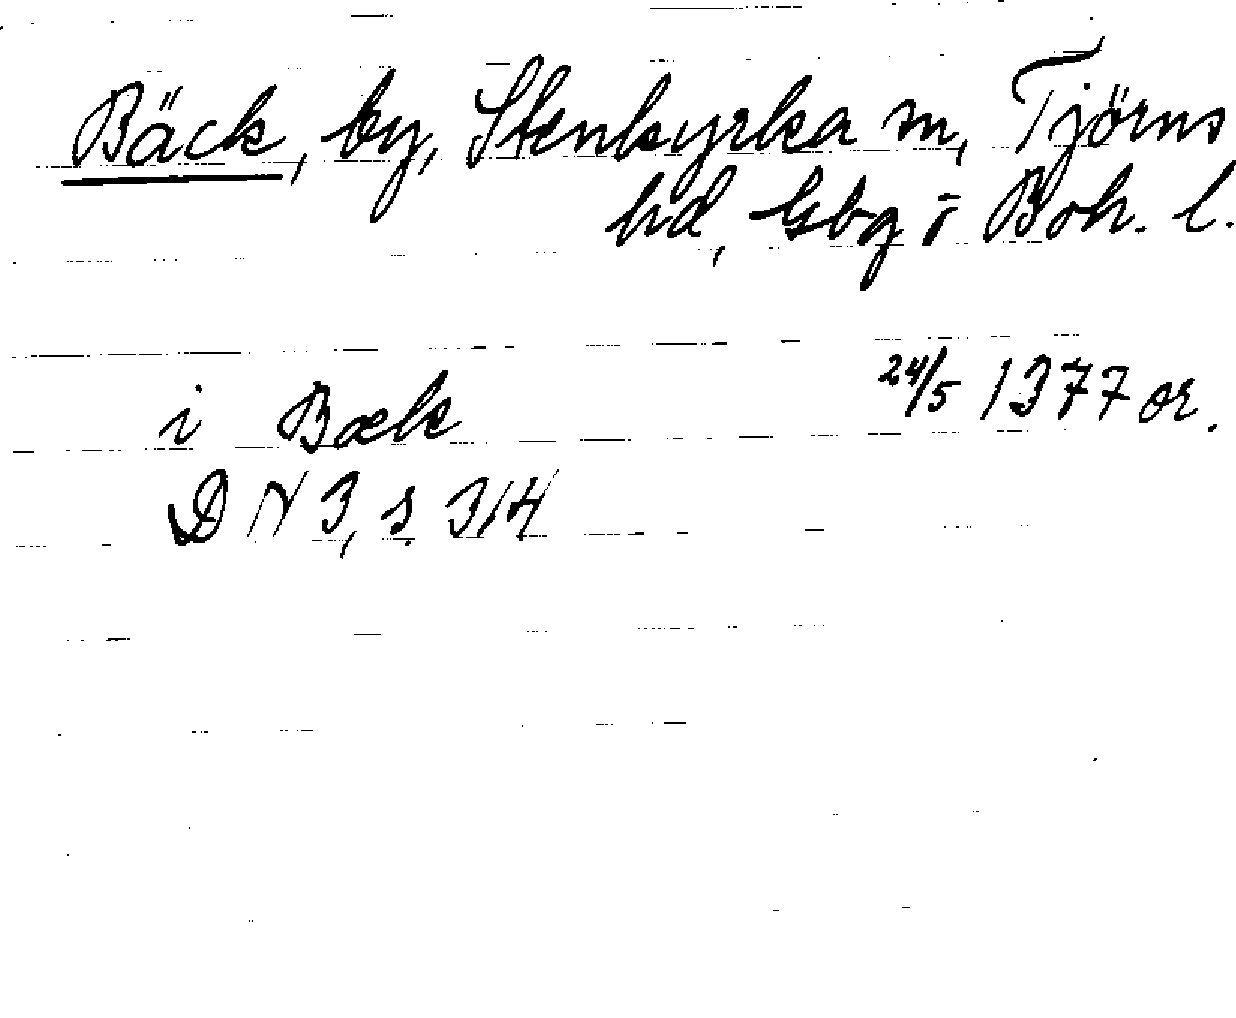 Bäck, by, Stenkyrka sn, Tjörns
hd, Gbg o Boh. l.
i Bæk 24/5 1377 or.
DN 3, s. 314